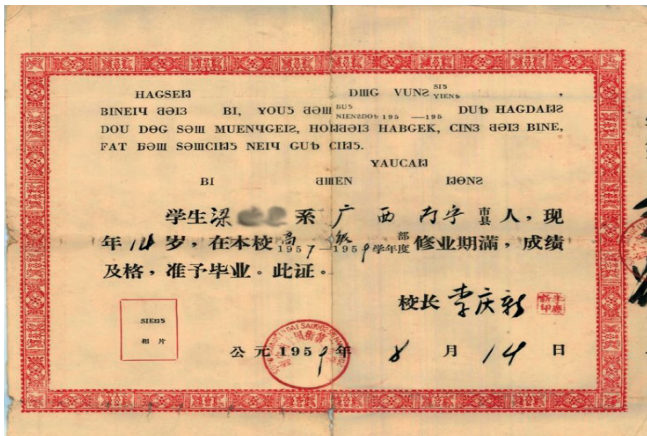 HAGSEŊ DƜG VUNƨ SIƨ YIENƨ ,
BINEIЧ ƋƏIз BI, YOUƽ ƋƏƜ DUƽ NIENƨDOƅ 195 —195 DUƅ HAGDAŊƨ
DOU DɵG SƏƜ MUENЧGEIƨ, HOŊƋƏIз HABGEK, CINз ƋƏIз BINE,
FAT ƂƏƜ SƏƜCIŊƽ NEIЧ GUƅ CIŊƽ.
YAUCAŊ
BI ƋƜEN ŊONƨ
学生梁 系广西 市县人，现
年14岁，在本校高级部1957—1959学年度修业期满，成绩
及格，准予毕业。此证。
校长 李庆新
SIENƽ
相片
公元1959年 8月14日